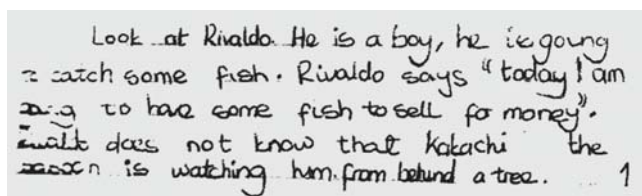 Look at Rivaldo. He is a boy, he is going
catch some fish. Rivaldo says "today I am
to have some fish to sell for money".
does not know that Kakachi the
is watching him from behind a tree. 1